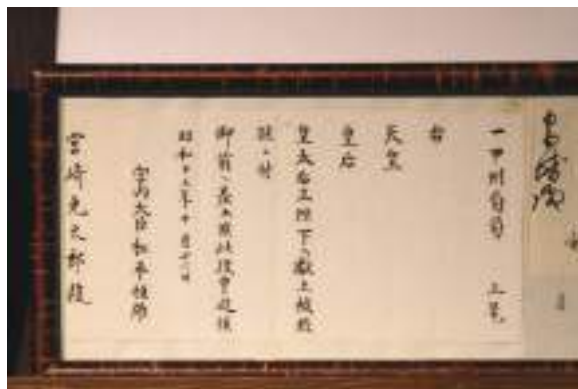 一甲州葡萄
右
天皇
皇后
皇太后三陛下へ献上被致
候ニ付
御前へ差上候此段申進候
昭和十三年十月十二日
宮内大臣松平恒雄
宮崎光太郎殿